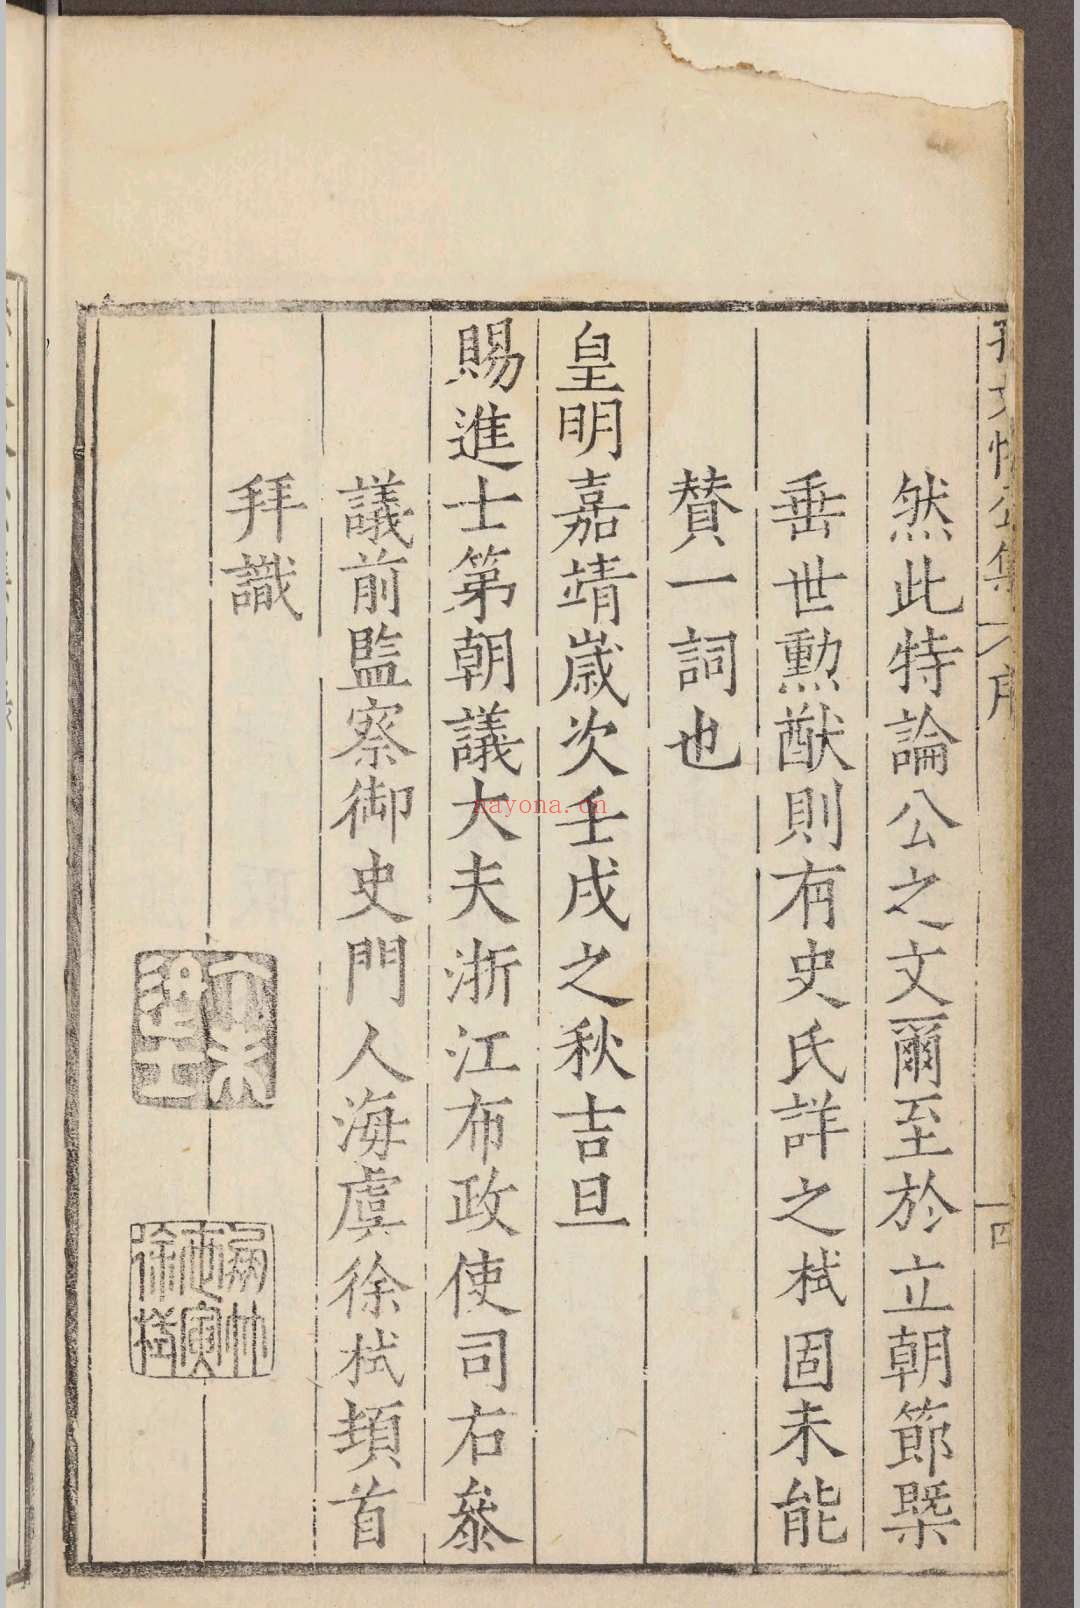 然此特論公之文爾至於立朝節槩
垂世勲猷則有史氏詳之栻固未能
賛一詞也
皇明嘉靖歲次壬戌之秋吉旦
賜進士第朝議大夫浙江布政使司右叅
議前監察御史門人海虞徐栻頓首
拜識
nayona.cn